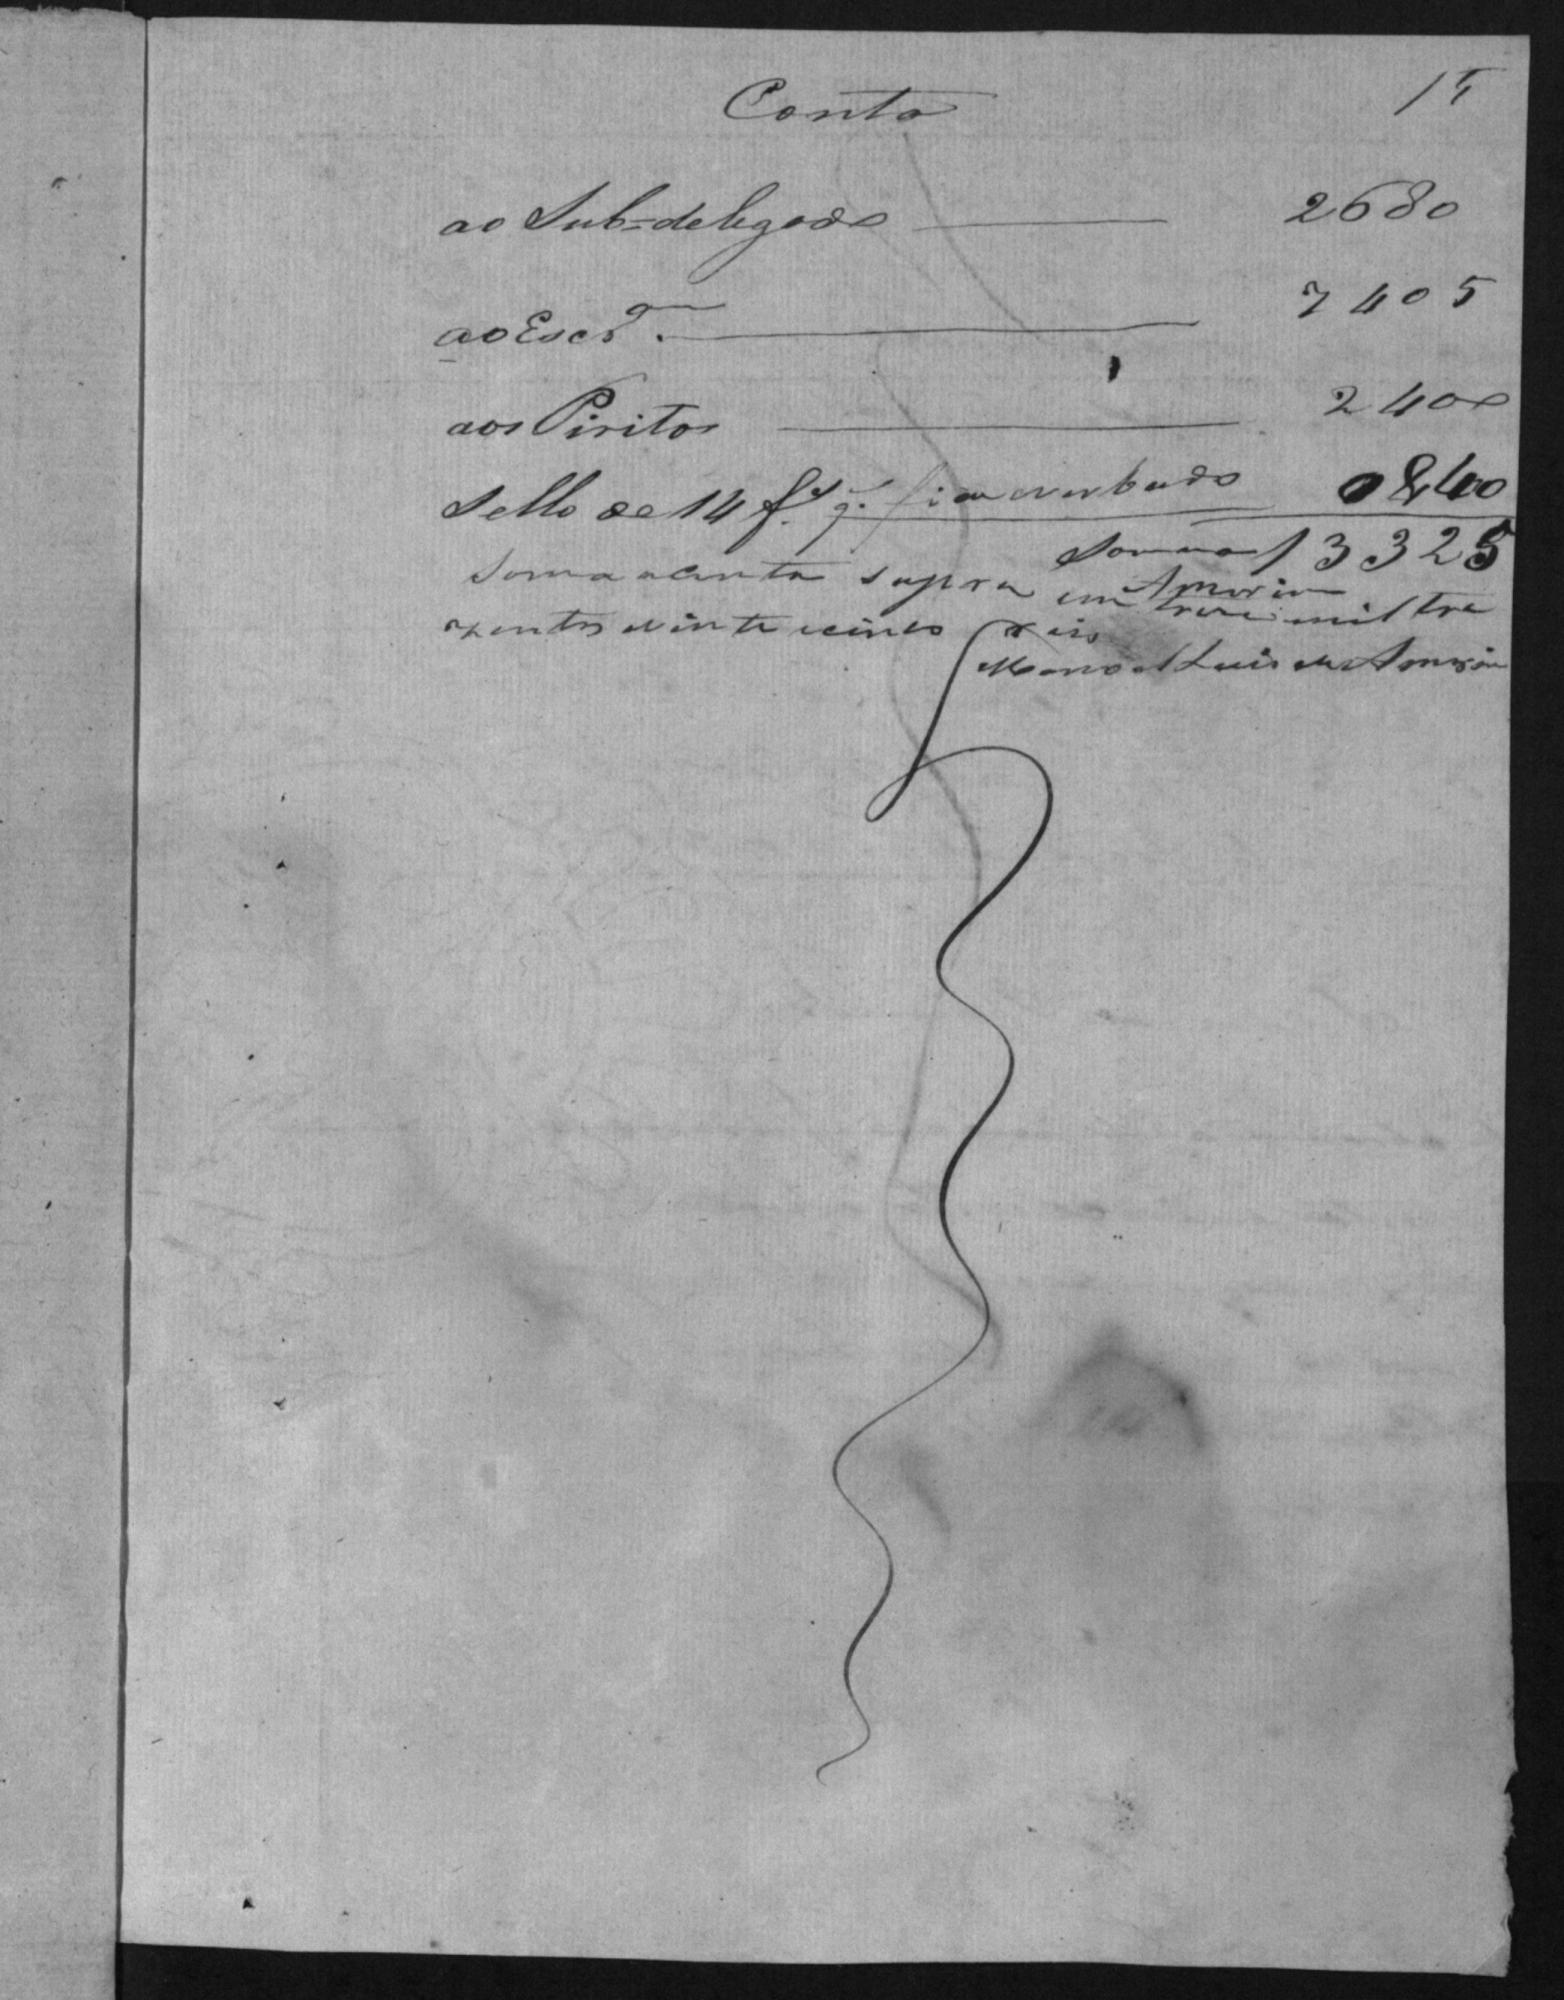 Conta 15
ao Sub=delegado 2680
ao Escr.m 7405
aos Piritos 2400
Sello de 14 f.s q. fica averbado 0840
Somma 13325
Amorim
Soma a Conta supra em treze mil tre
zentos vinte e cinco reis
Manoel Luis de Amorim